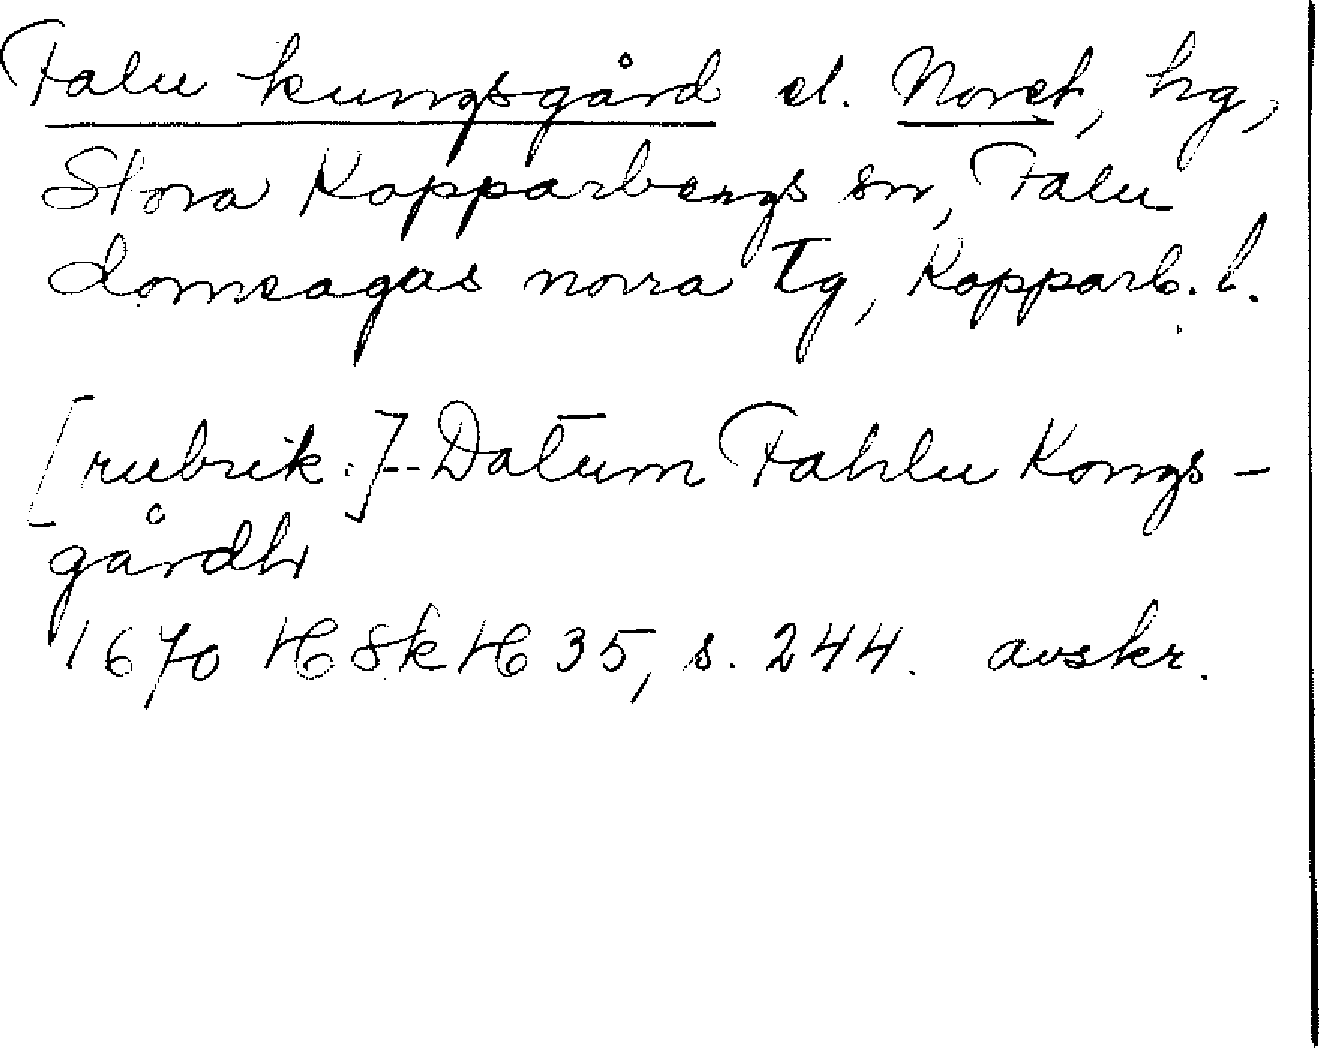 Falu kungsgård el. Noret, hg,
Stora Kopparbergs sn, Falu
domsagas norra tg, Kopparb. l.
[rubrik:]--Datum Fahlu Kongs-
gårdh
1670 HSkH 35, s. 244. avskr.